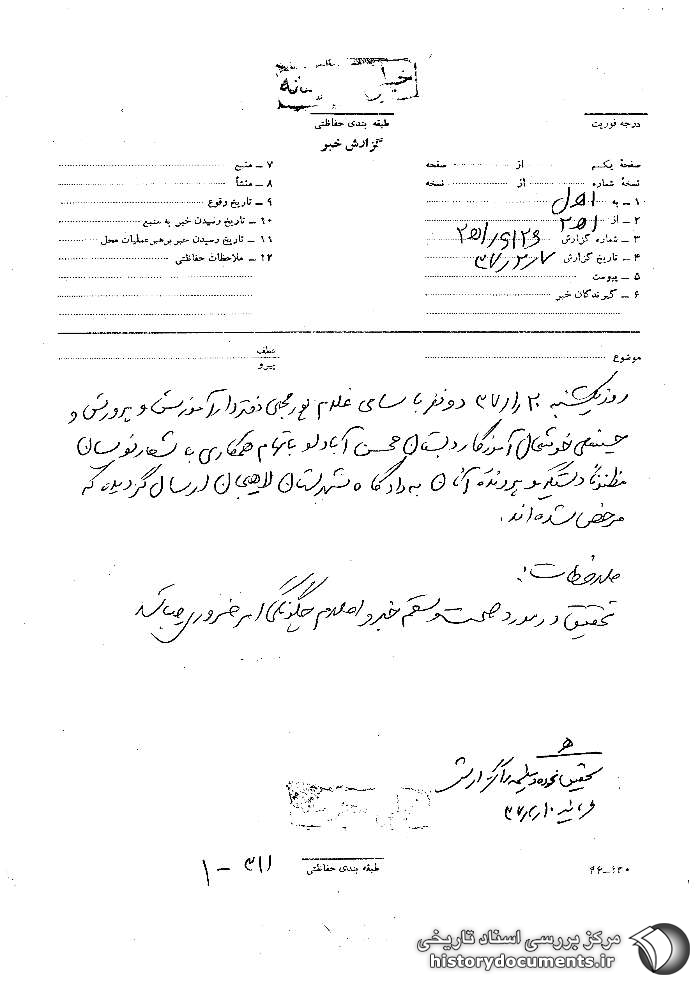 خیلی محرمانه
طبقه بندی حفاظتی
درجه فوریت
گزارش خبر
صفحهٔ یکم از صفحه
نسخهٔ شماره از نسخه
۱ – به
۲ – از ۳۵۱
۳ – شماره گزارش
۴ – تاریخ گزارش
۵ – پیوست
۶ – گیرندگان خبر
۷ – منبع
۸ – منشأ
۹ – تاریخ وقوع
۱۰ – تاریخ رسیدن خبر به منبع
۱۱ – تاریخ رسیدن خبر برهبر عملیات محل
۱۲ – ملاحظات حفاظتی
موضوع
عطف
پیرو
روز یکشنبه دو نفر با سامی غلام دفتردار آموزش و پرورش و
آموزگار دبستان محسن آبادلو باتهام همکاری با شعارنویسان
مظنوناً دستگیر و پرونده آنان به دادگاه شهرستان لاهیجان ارسال گردیده که
مرخص شده اند.
ملاحظات:
تحقیق در مورد صحت و سقم خبر و اعلام چگونگی امر ضروری میباشد
ه
طبقه بندی حفاظتی
۳۱۱ – ۱
مرکز بررسی اسناد تاریخی
historydocuments.ir